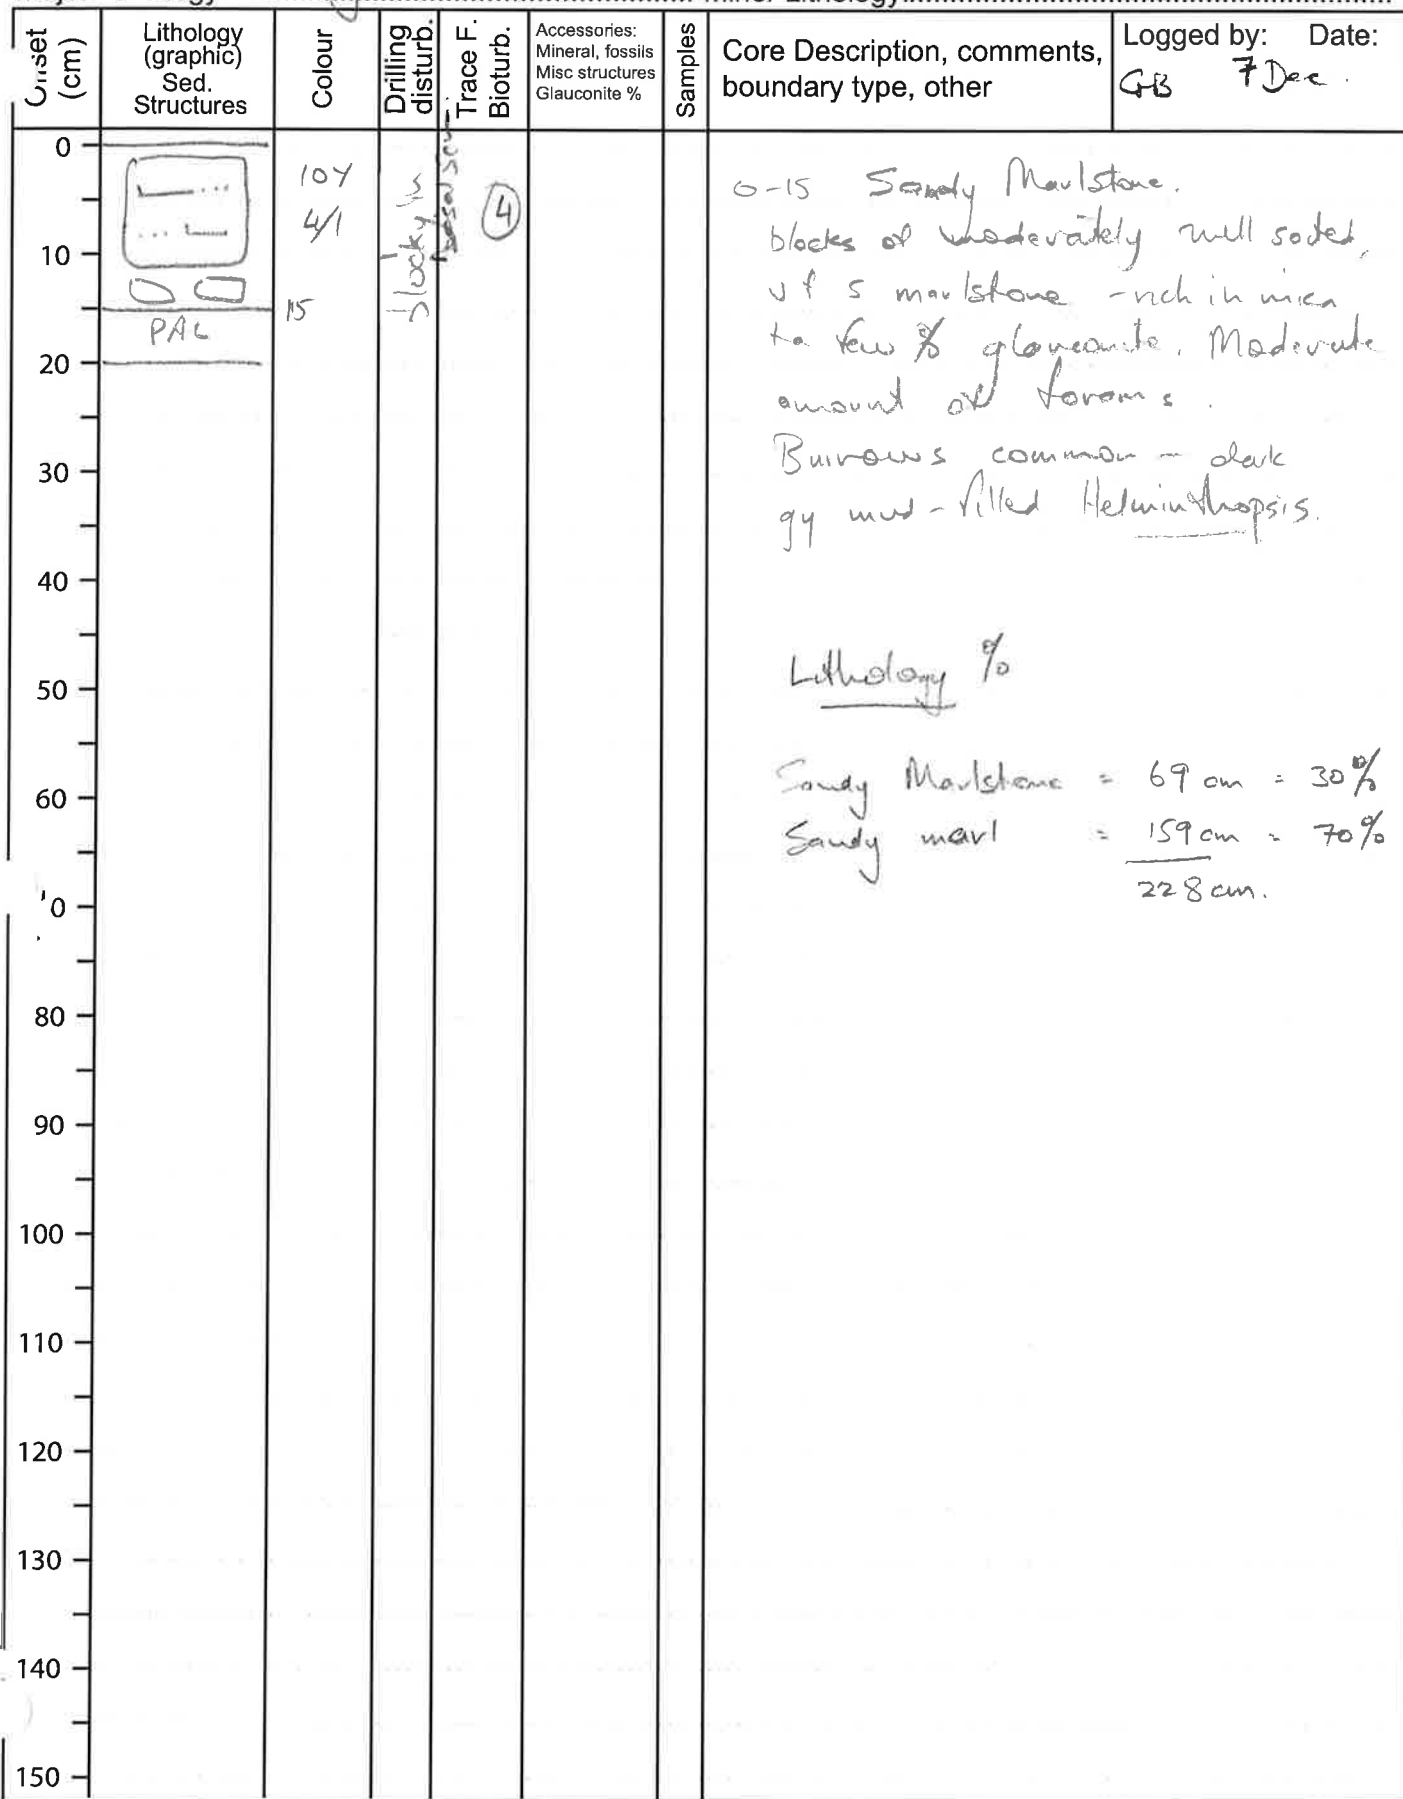 Offset (cm)
Lithology
(graphic)
Sed.
Structures
Colour
Drilling
disturb.
Trace F.
Bioturb.
Accessories:
Mineral, fossils
Misc structures
Glauconite %
Samples
Core Description, comments,
boundary type, other
Logged by: Date:
GB 7 Dec.
0
10
20
30
40
50
60
0
80
90
100
110
120
130
140
150
PAL
10Y
4/1
15
blocky
basal
4
0-15 Sandy Marlstone.
blocks of moderately well sorted,
vf s marlstone - rich in mica
few % glauconite. Moderate
amount of forams.
Burrows common - dark
gy mud-filled Helminthopsis.
Lithology %
Sandy Marlstone = 69 cm = 30%
Sandy marl = 159 cm = 70%
228 cm.